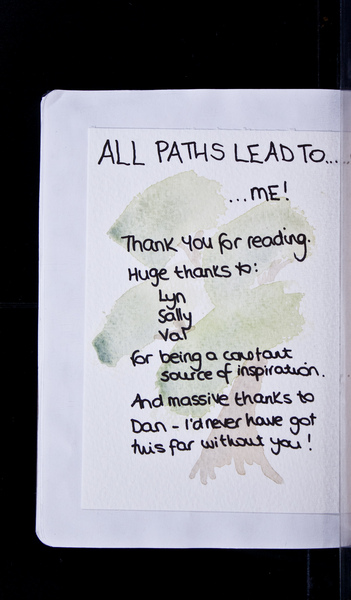 ALL PATHS LEAD TO...
...ME!
Thank you for reading.
Huge thanks to:
Lyn
Sally
Val
for being a constant
source of inspiration.
And massive thanks to
Dan - I'd never have got
this far without you!